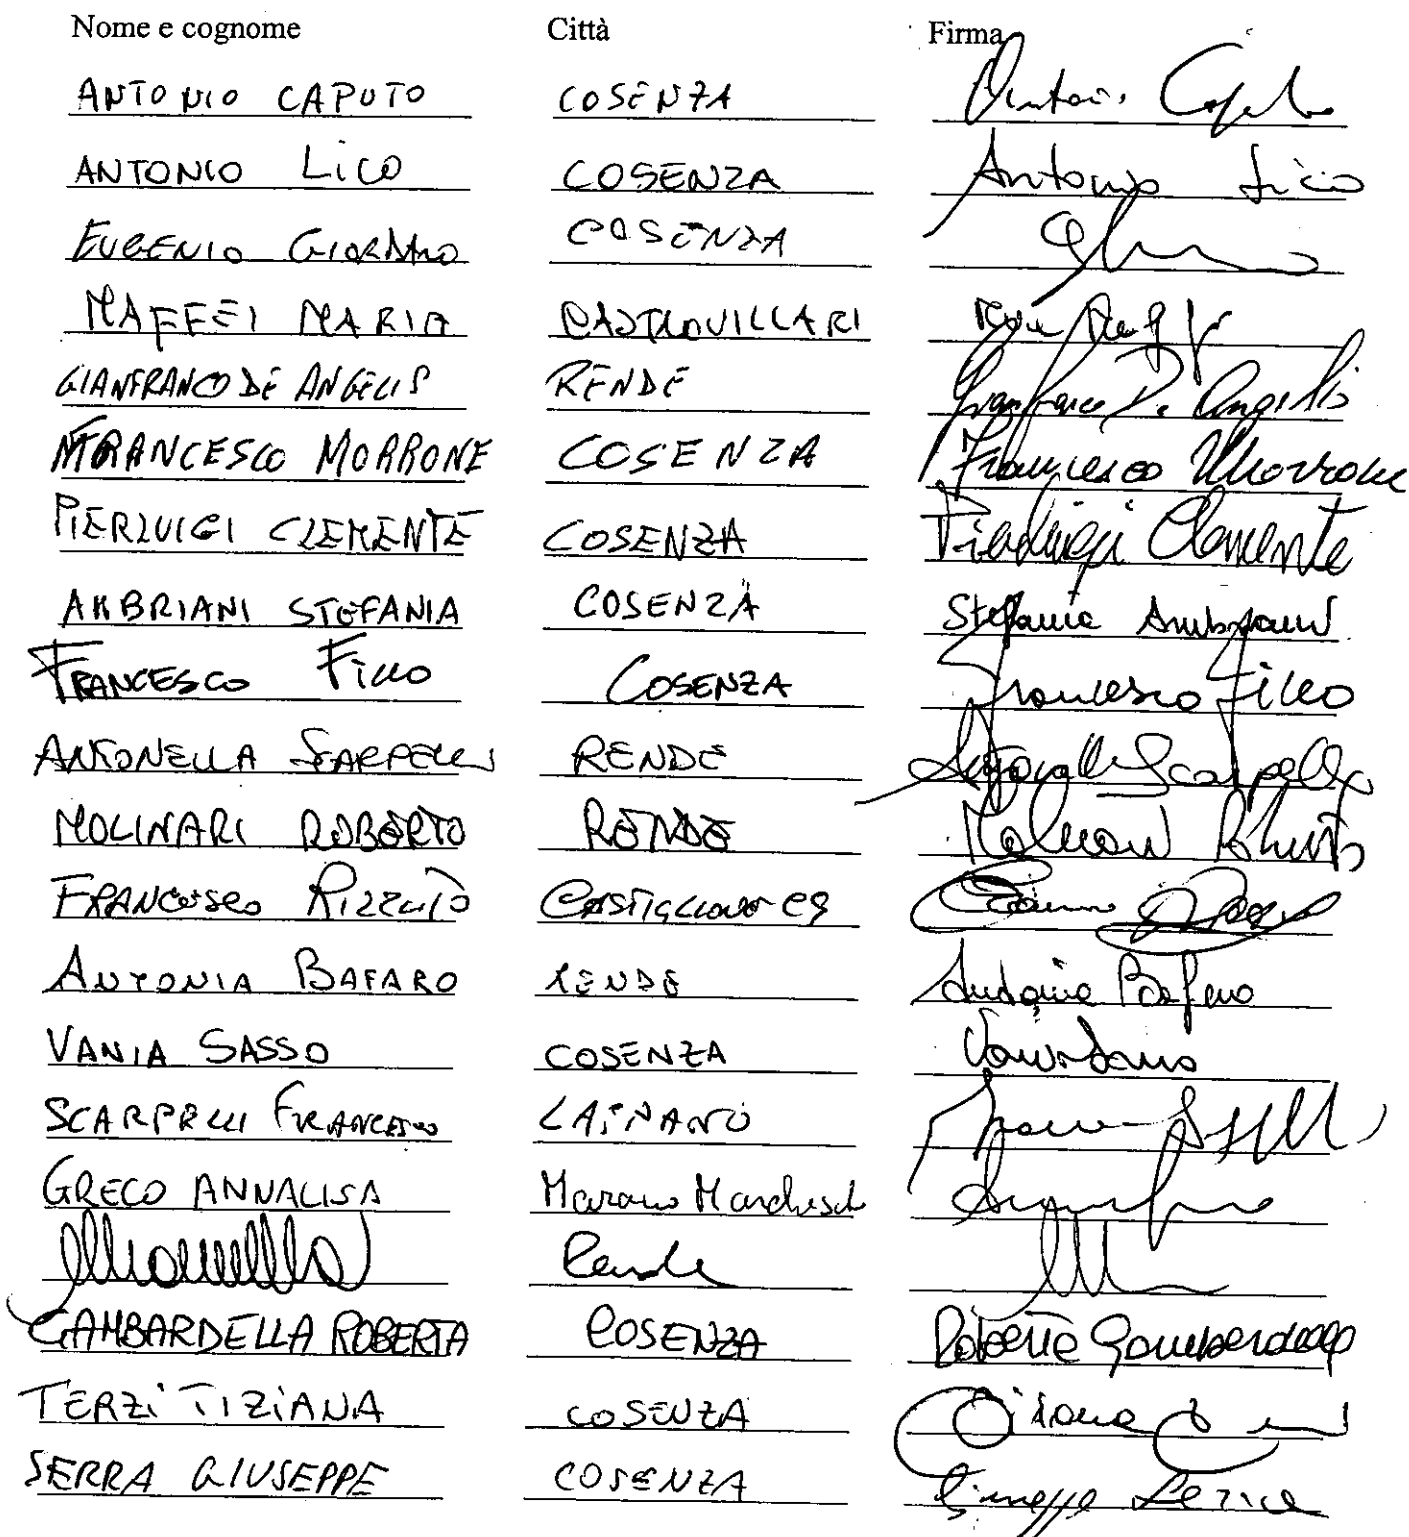 Nome e cognome Città Firma
ANTONIO CAPUTO COSENZA Antonio Caputo
ANTONIO LICO COSENZA Antonio Lico
EUGENIO GIORDANO COSENZA
MAFFEI MARIA CASTROVILLARI
GIANFRANCO DE ANGELIS RENDE Gianfranco De Angelis
FRANCESCO MORRONE COSENZA Francesco Morrone
PIERLUIGI CLEMENTE COSENZA Pierluigi Clemente
AMBRIANI STEFANIA COSENZA Stefania Ambriani
FRANCESCO FILLO COSENZA Francesco Fillo
ANTONELLA SCARPELLI RENDE Antonella Scarpelli
MOLINARI ROBERTO RENDE Molinari Roberto
FRANCESCO RIZZUTO CASTIGLIONE CS
ANTONIA BAFARO RENDE Antonia Bafaro
VANIA SASSO COSENZA Vania Sasso
SCARPELLI FRANCESCO
GRECO ANNALISA Marano Marchesato
Rende
GAMBARDELLA ROBERTA COSENZA Roberta Gambardella
TERZI TIZIANA COSENZA Tiziana
SERRA GIUSEPPE COSENZA Giuseppe Serra